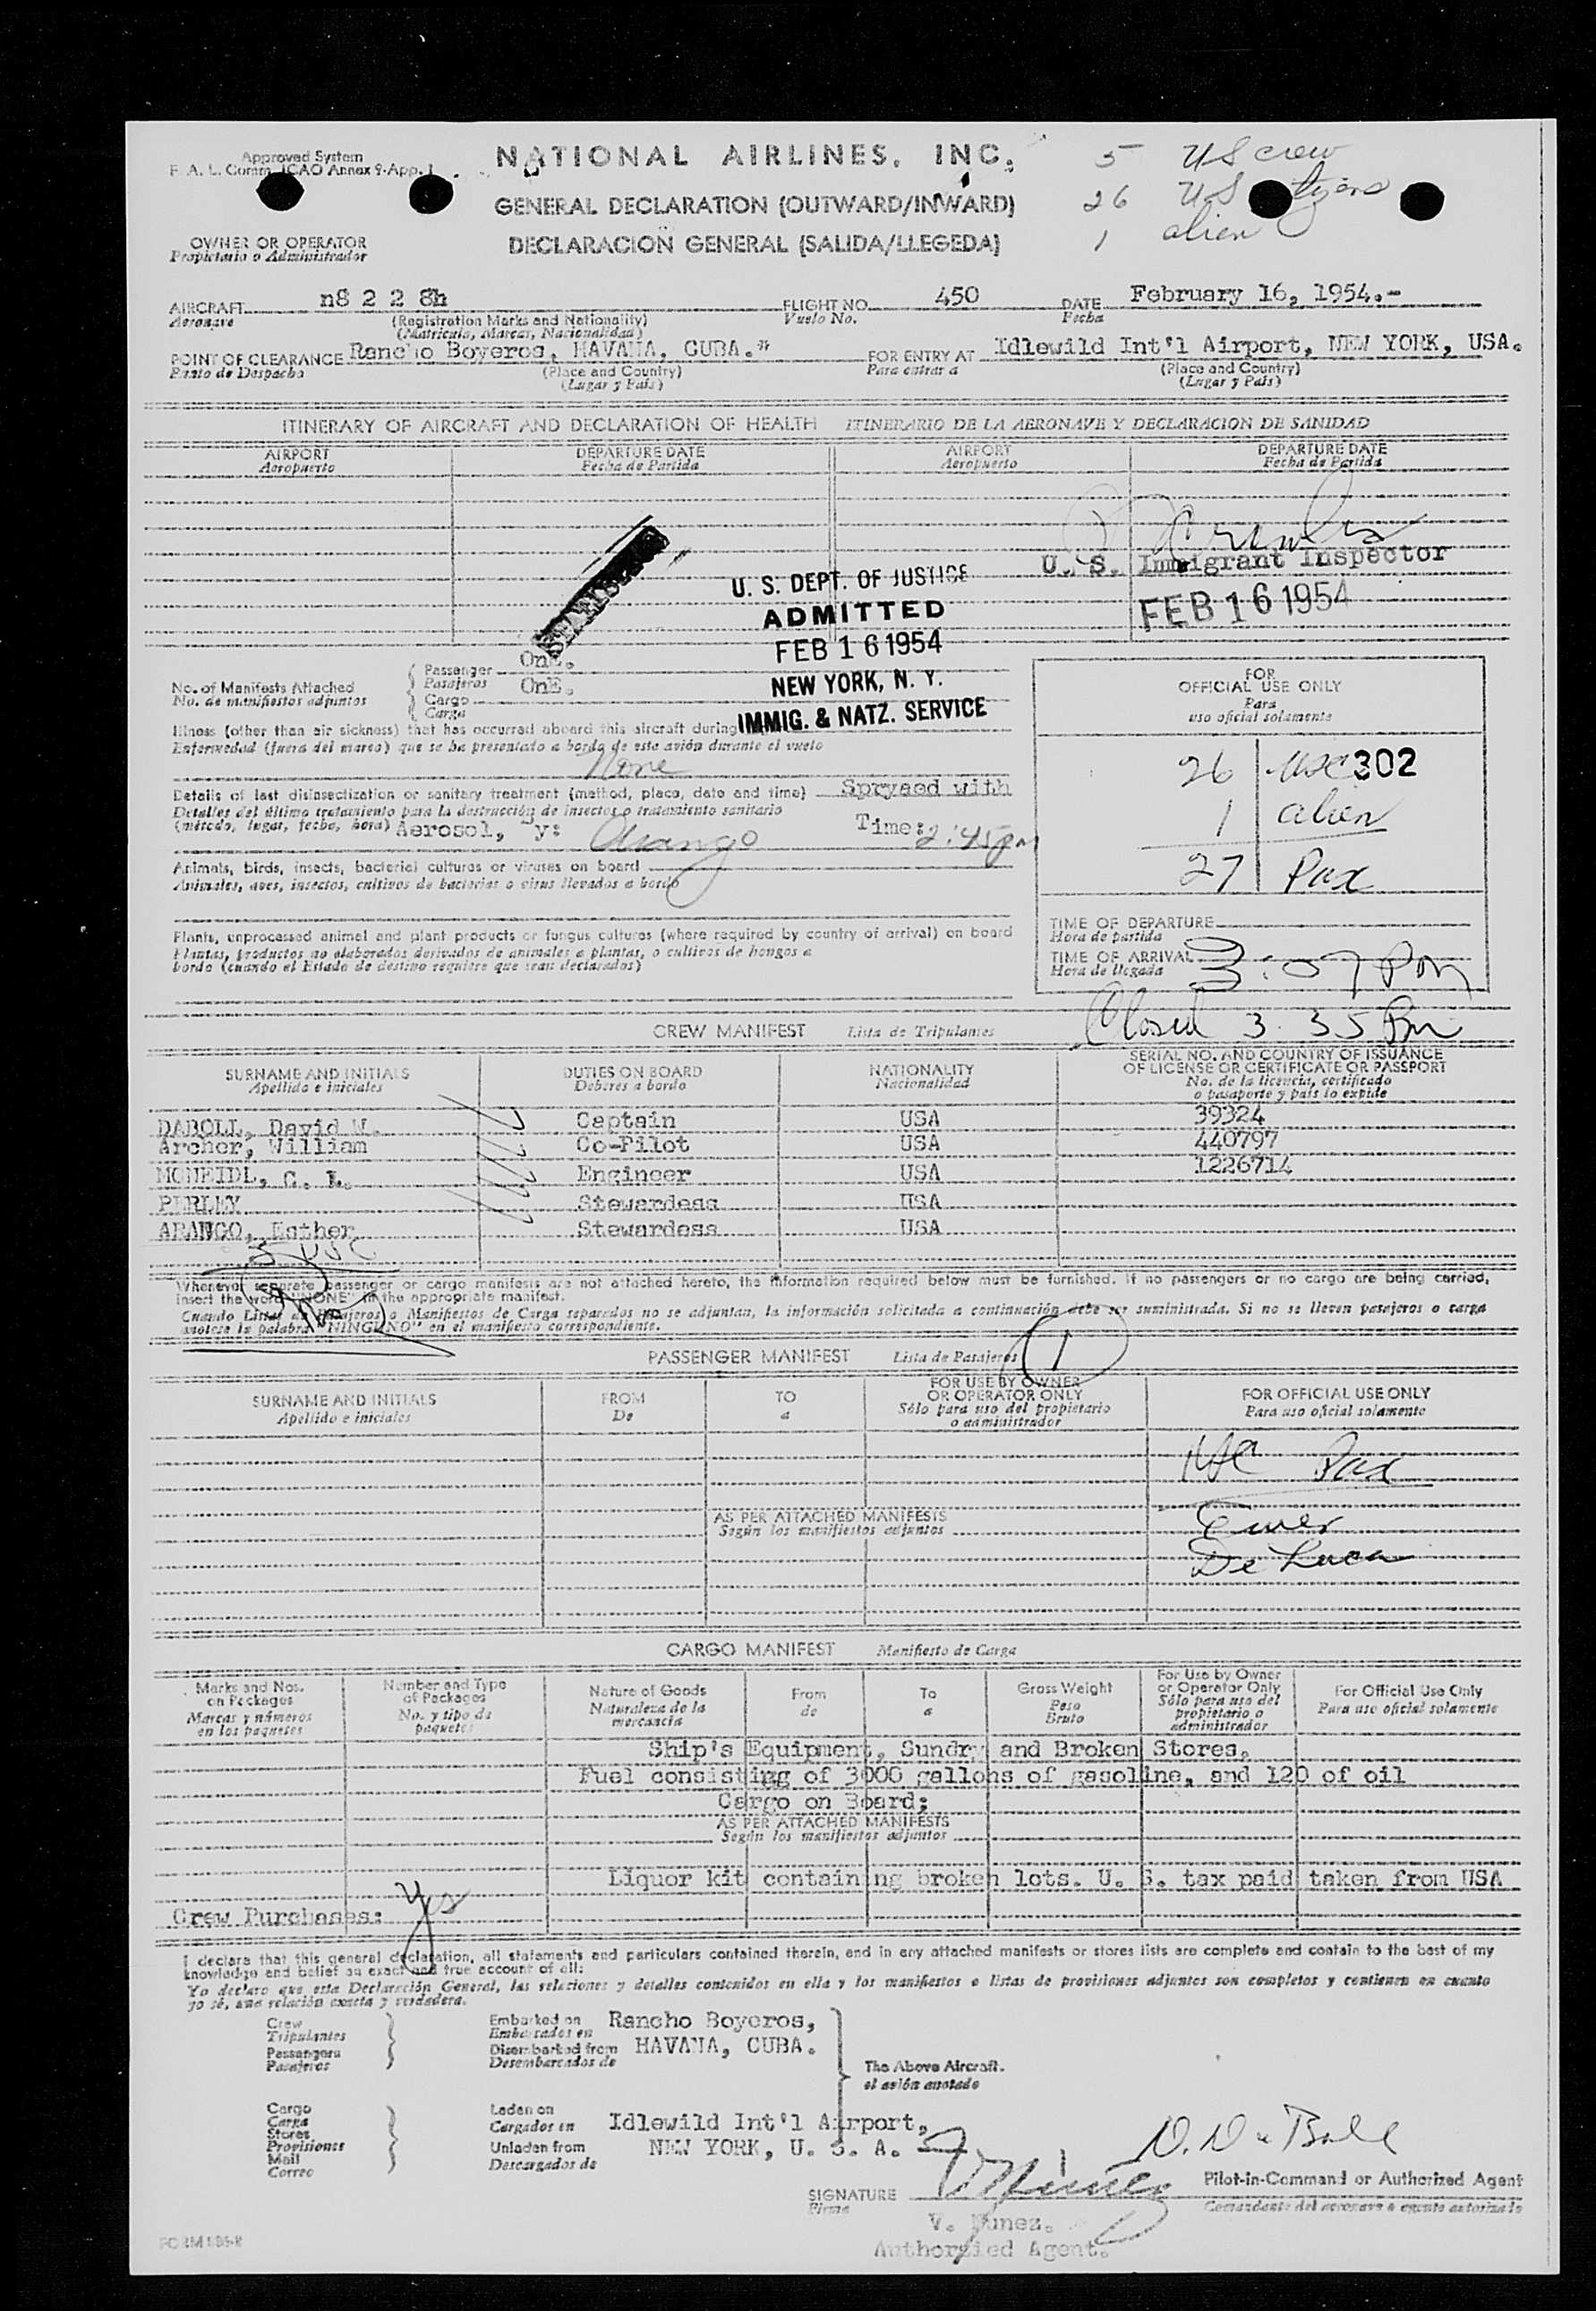 Approved System
F. A. L. Comm. ICAO Annex 9-App. 1
NATIONAL AIRLINES, INC.
GENERAL DECLARATION (OUTWARD/INWARD)
DECLARACION GENERAL (SALIDA/LLEGEDA)
5 US crew
26 US
1 alien
OWNER OR OPERATOR
Propietario o Administrador
AIRCRAFT n8 2 2 8h FLIGHT NO. 450 DATE February 16, 1954.-
Aeronave (Registration Marks and Nationality) Vuelo No. Fecha
(Matricula, Marcas, Nacionalidad)
POINT OF CLEARANCE Rancho Boyeros, HAVANA, CUBA." FOR ENTRY AT Idlewild Int'l Airport, NEW YORK, USA.
Punto de Despacho (Place and Country) Para entrar a (Place and Country)
(Lugar y País) (Lugar y País)
ITINERARY OF AIRCRAFT AND DECLARATION OF HEALTH ITINERARIO DE LA AERONAVE Y DECLARACION DE SANIDAD
AIRPORT DEPARTURE DATE AIRPORT DEPARTURE DATE
Aeropuerto Fecha de Partida Aeropuerto Fecha de Partida
U. S. Immigrant Inspector
FEB 16 1954
U. S. DEPT. OF JUSTICE
ADMITTED
FEB 16 1954
NEW YORK, N. Y.
IMMIG. & NATZ. SERVICE
No. of Manifests Attached
No. de manifiestos adjuntos
Passenger OnE.
Pasajeros OnE.
Cargo
Carga
Illness (other than air sickness) that has occurred aboard this aircraft during
Enfermedad (fuera del mareo) que se ha presentado a bordo de este avión durante el vuelo
None
Details of last disinsectization or sanitary treatment (method, place, date and time) Spryaed with
Detalles del último tratamiento para la destrucción de insectos o tratamiento sanitario
(método, lugar, fecha, hora) Aerosol, By: Arango Time: 2:45pm
Animals, birds, insects, bacterial cultures or viruses on board
Animales, aves, insectos, cultivos de bacterias o virus llevados a bordo
Plants, unprocessed animal and plant products or fungus cultures (where required by country of arrival) on board
Plantas, productos no elaborados derivados de animales a plantas, o cultivos de hongos a
bordo (cuando el Estado de destino requiere que sean declarados)
FOR
OFFICIAL USE ONLY
Para
uso oficial solamente
26 USC 302
1 alien
27 Pax
TIME OF DEPARTURE
Hora de partida
TIME OF ARRIVAL 3:07 Pm
Hora de llegada
Closed 3:35 Pm
CREW MANIFEST Lista de Tripulantes
SURNAME AND INITIALS DUTIES ON BOARD NATIONALITY SERIAL NO. AND COUNTRY OF ISSUANCE
Apellido e iniciales Deberes a bordo Nacionalidad OF LICENSE OR CERTIFICATE OR PASSPORT
No. de la licencia, certificado
o pasaporte y país lo expide
DABOLL, David W. Captain USA 39324
Archer, William Co-Pilot USA 440797
MCNEIDL, C. L. Engineer USA 1226714
PERLEY Stewardess USA
ARANGO, Esther Stewardess USA
5 USC
Whenever separate passenger or cargo manifests are not attached hereto, the information required below must be furnished. If no passengers or no cargo are being carried,
insert the word "NONE" in the appropriate manifest.
Cuando Listas de Pasajeros o Manifiestos de Carga separados no se adjuntan, la información solicitada a continuación debe ser suministrada. Si no se llevan pasajeros o carga
anotese la palabra "NINGUNO" en el manifiesto correspondiente.
PASSENGER MANIFEST Lista de Pasajeros 1
SURNAME AND INITIALS FROM TO FOR USE BY OWNER FOR OFFICIAL USE ONLY
Apellido e iniciales De a OR OPERATOR ONLY Para uso oficial solamente
Sólo para uso del propietario
o administrador
Pax
AS PER ATTACHED MANIFESTS
Según los manifiestos adjuntos
De Luca
CARGO MANIFEST Manifiesto de Carga
Marks and Nos. on Packages Number and Type of Packages Nature of Goods From To Gross Weight For Use by Owner or Operator Only For Official Use Only
Marcas y números en los paquetes No. y tipo de paquetes Naturaleza de la mercancia de a Peso Bruto Sólo para uso del propietario o administrador Para uso oficial solamente
Ship's Equipment, Sundry and Broken Stores.
Fuel consisting of 3000 gallons of gasoline, and 120 of oil
Cargo on Board;
AS PER ATTACHED MANIFESTS
Según los manifiestos adjuntos
Liquor kit containing broken lots. U. S. tax paid taken from USA
Crew Purchases: Yes
I declare that this general declaration, all statements and particulars contained therein, and in any attached manifests or stores lists are complete and contain to the best of my
knowledge and belief an exact and true account of all:
Yo declaro que esta Declaración General, las relaciones y detalles contenidos en ella y los manifiestos o listas de provisiones adjuntos son completos y contienen en cuanto
yo sé, una relación exacta y verdadera.
Crew Embarked on Rancho Boyeros,
Tripulantes Embarcados en
Passengers Disembarked from HAVANA, CUBA.
Pasajeros Desembarcados de
The Above Aircraft.
el avión anotado
Cargo Laden on
Carga Cargados en Idlewild Int'l Airport,
Stores
Provisiones Unladen from NEW YORK, U. S. A.
Mail Descargados de
Correo
SIGNATURE
Firma
Pilot-in-Command or Authorized Agent
Comandante del aeronave o agente autorizado
V. Nunez.
Authorzied Agent.